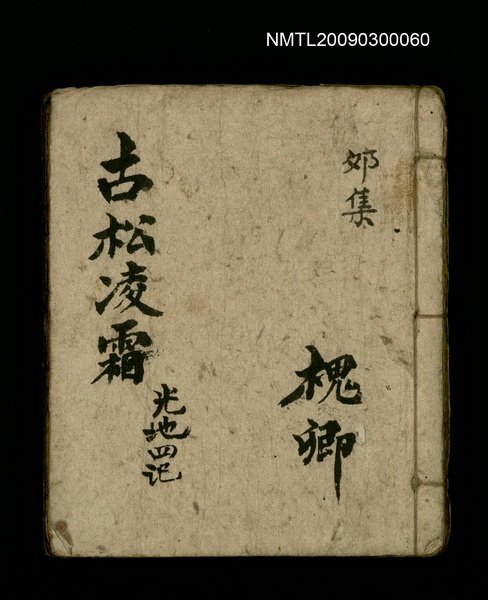 NMTL20090300060
卯集
槐卿
古松凌霜
光地四记